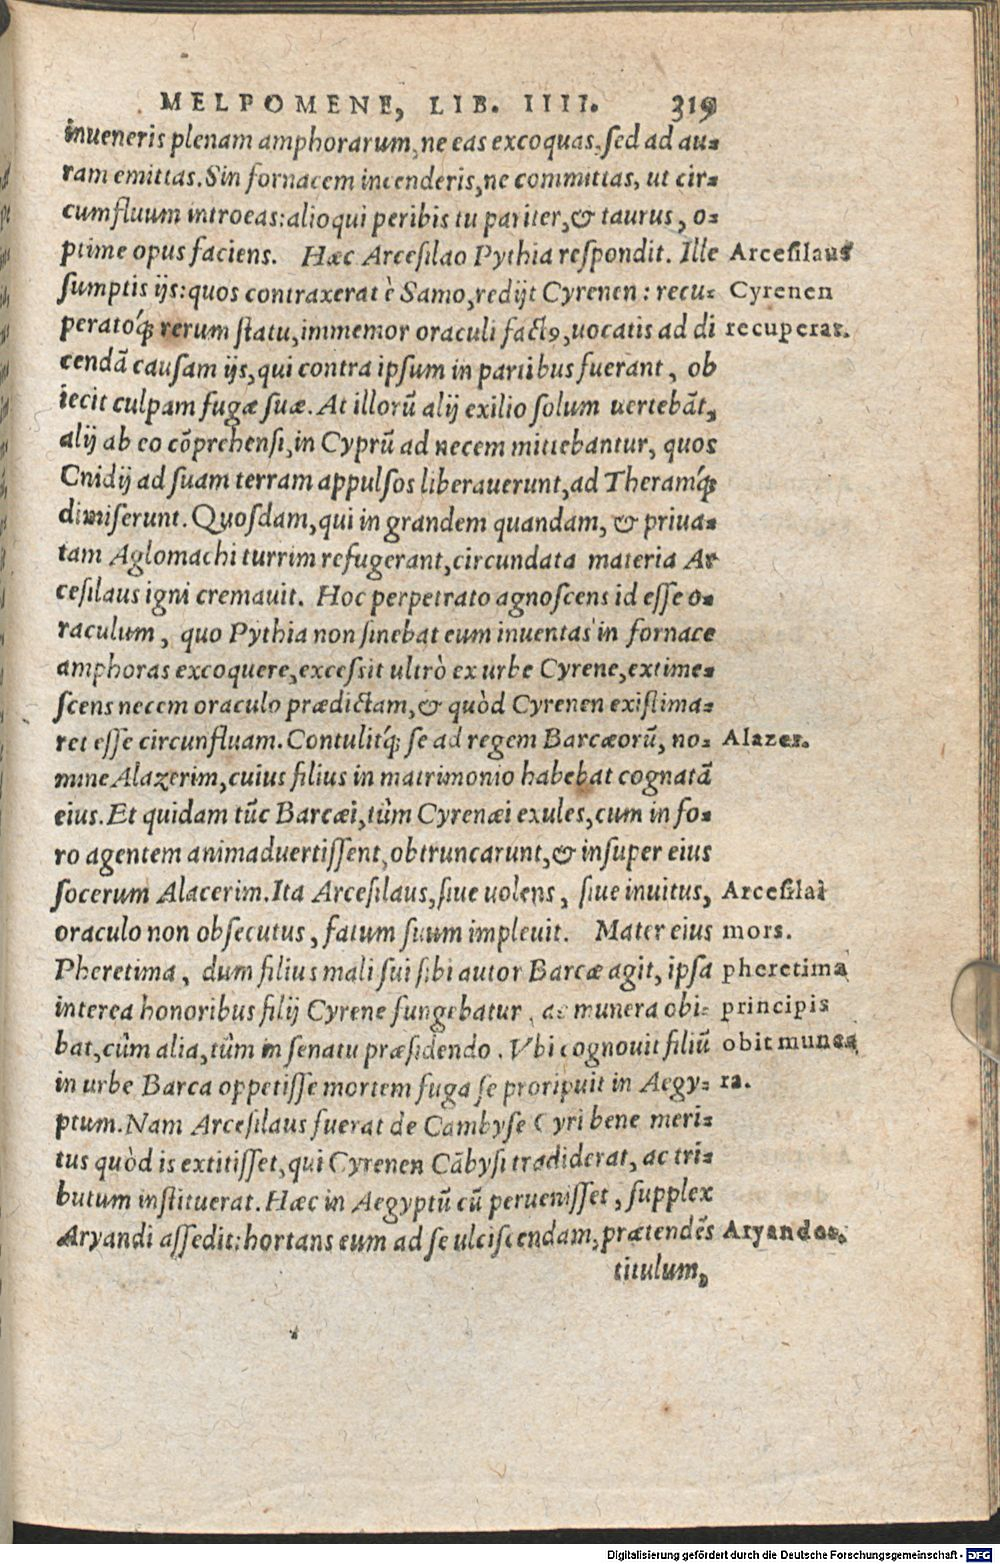 MELPOMENE, LIB. IIII. 319
inueneris plenam amphorarum, ne eas excoquas, sed ad au-
ram emittas. Sin fornacem incenderis, ne committas, ut cir-
cumfluum introeas: alioqui peribis tu pariter, & taurus, o-
ptime opus faciens. Hæc Arcesilao Pythia respondit. Ille Arcesilaus
sumptis ijs: quos contraxerat è Samo, redijt Cyrenen: recu- Cyrenen
peratóq́; rerum statu, immemor oraculi factꝰ, uocatis ad di recuperat.
cendā causam ijs, qui contra ipsum in partibus fuerant, ob
iecit culpam fugæ suæ. At illorū alij exilio solum uertebāt,
alij ab eo cōprehensi, in Cyprū ad necem mittebantur, quos
Cnidij ad suam terram appulsos liberauerunt, ad Theramq́;
dimiserunt. Quosdam, qui in grandem quandam, & priua-
tam Aglomachi turrim refugerant, circundata materia Ar
cesilaus igni cremauit. Hoc perpetrato agnoscens id esse o-
raculum, quo Pythia non sinebat eum inuentas in fornace
amphoras excoquere, excessit ultrò ex urbe Cyrene, extime-
scens necem oraculo prædictam, & quòd Cyrenen existima-
ret esse circunfluam. Contulitq́; se ad regem Barcæorū, no- Alazer.
mine Alazerim, cuius filius in matrimonio habebat cognatā
eius. Et quidam tūc Barcæi, tûm Cyrenæi exules, cum in fo-
ro agentem animaduertissent, obtruncarunt, & insuper eius
socerum Alacerim. Ita Arcesilaus, siue uolens, siue inuitus, Arcesilai
oraculo non obsecutus, fatum suum impleuit. Mater eius mors.
Pheretima, dum filius mali sui sibi autor Barcæ agit, ipsa pheretima
interea honoribus filij Cyrene fungebatur, ac munera obi- principis
bat, cûm alia, tûm in senatu præsidendo. Vbi cognouit filiū obit mune-
in urbe Barca oppetisse mortem fuga se proripuit in Aegy- ra.
ptum. Nam Arcesilaus fuerat de Cambyse Cyri bene meri-
tus quòd is extitisset, qui Cyrenen Cābysi tradiderat, ac tri-
butum instituerat. Hæc in Aegyptū cū peruenisset, supplex
Aryandi assedit: hortans eum ad se ulciscendam, prætendēs Aryandes.
titulum,
Digitalisierung gefördert durch die Deutsche Forschungsgemeinschaft - DFG